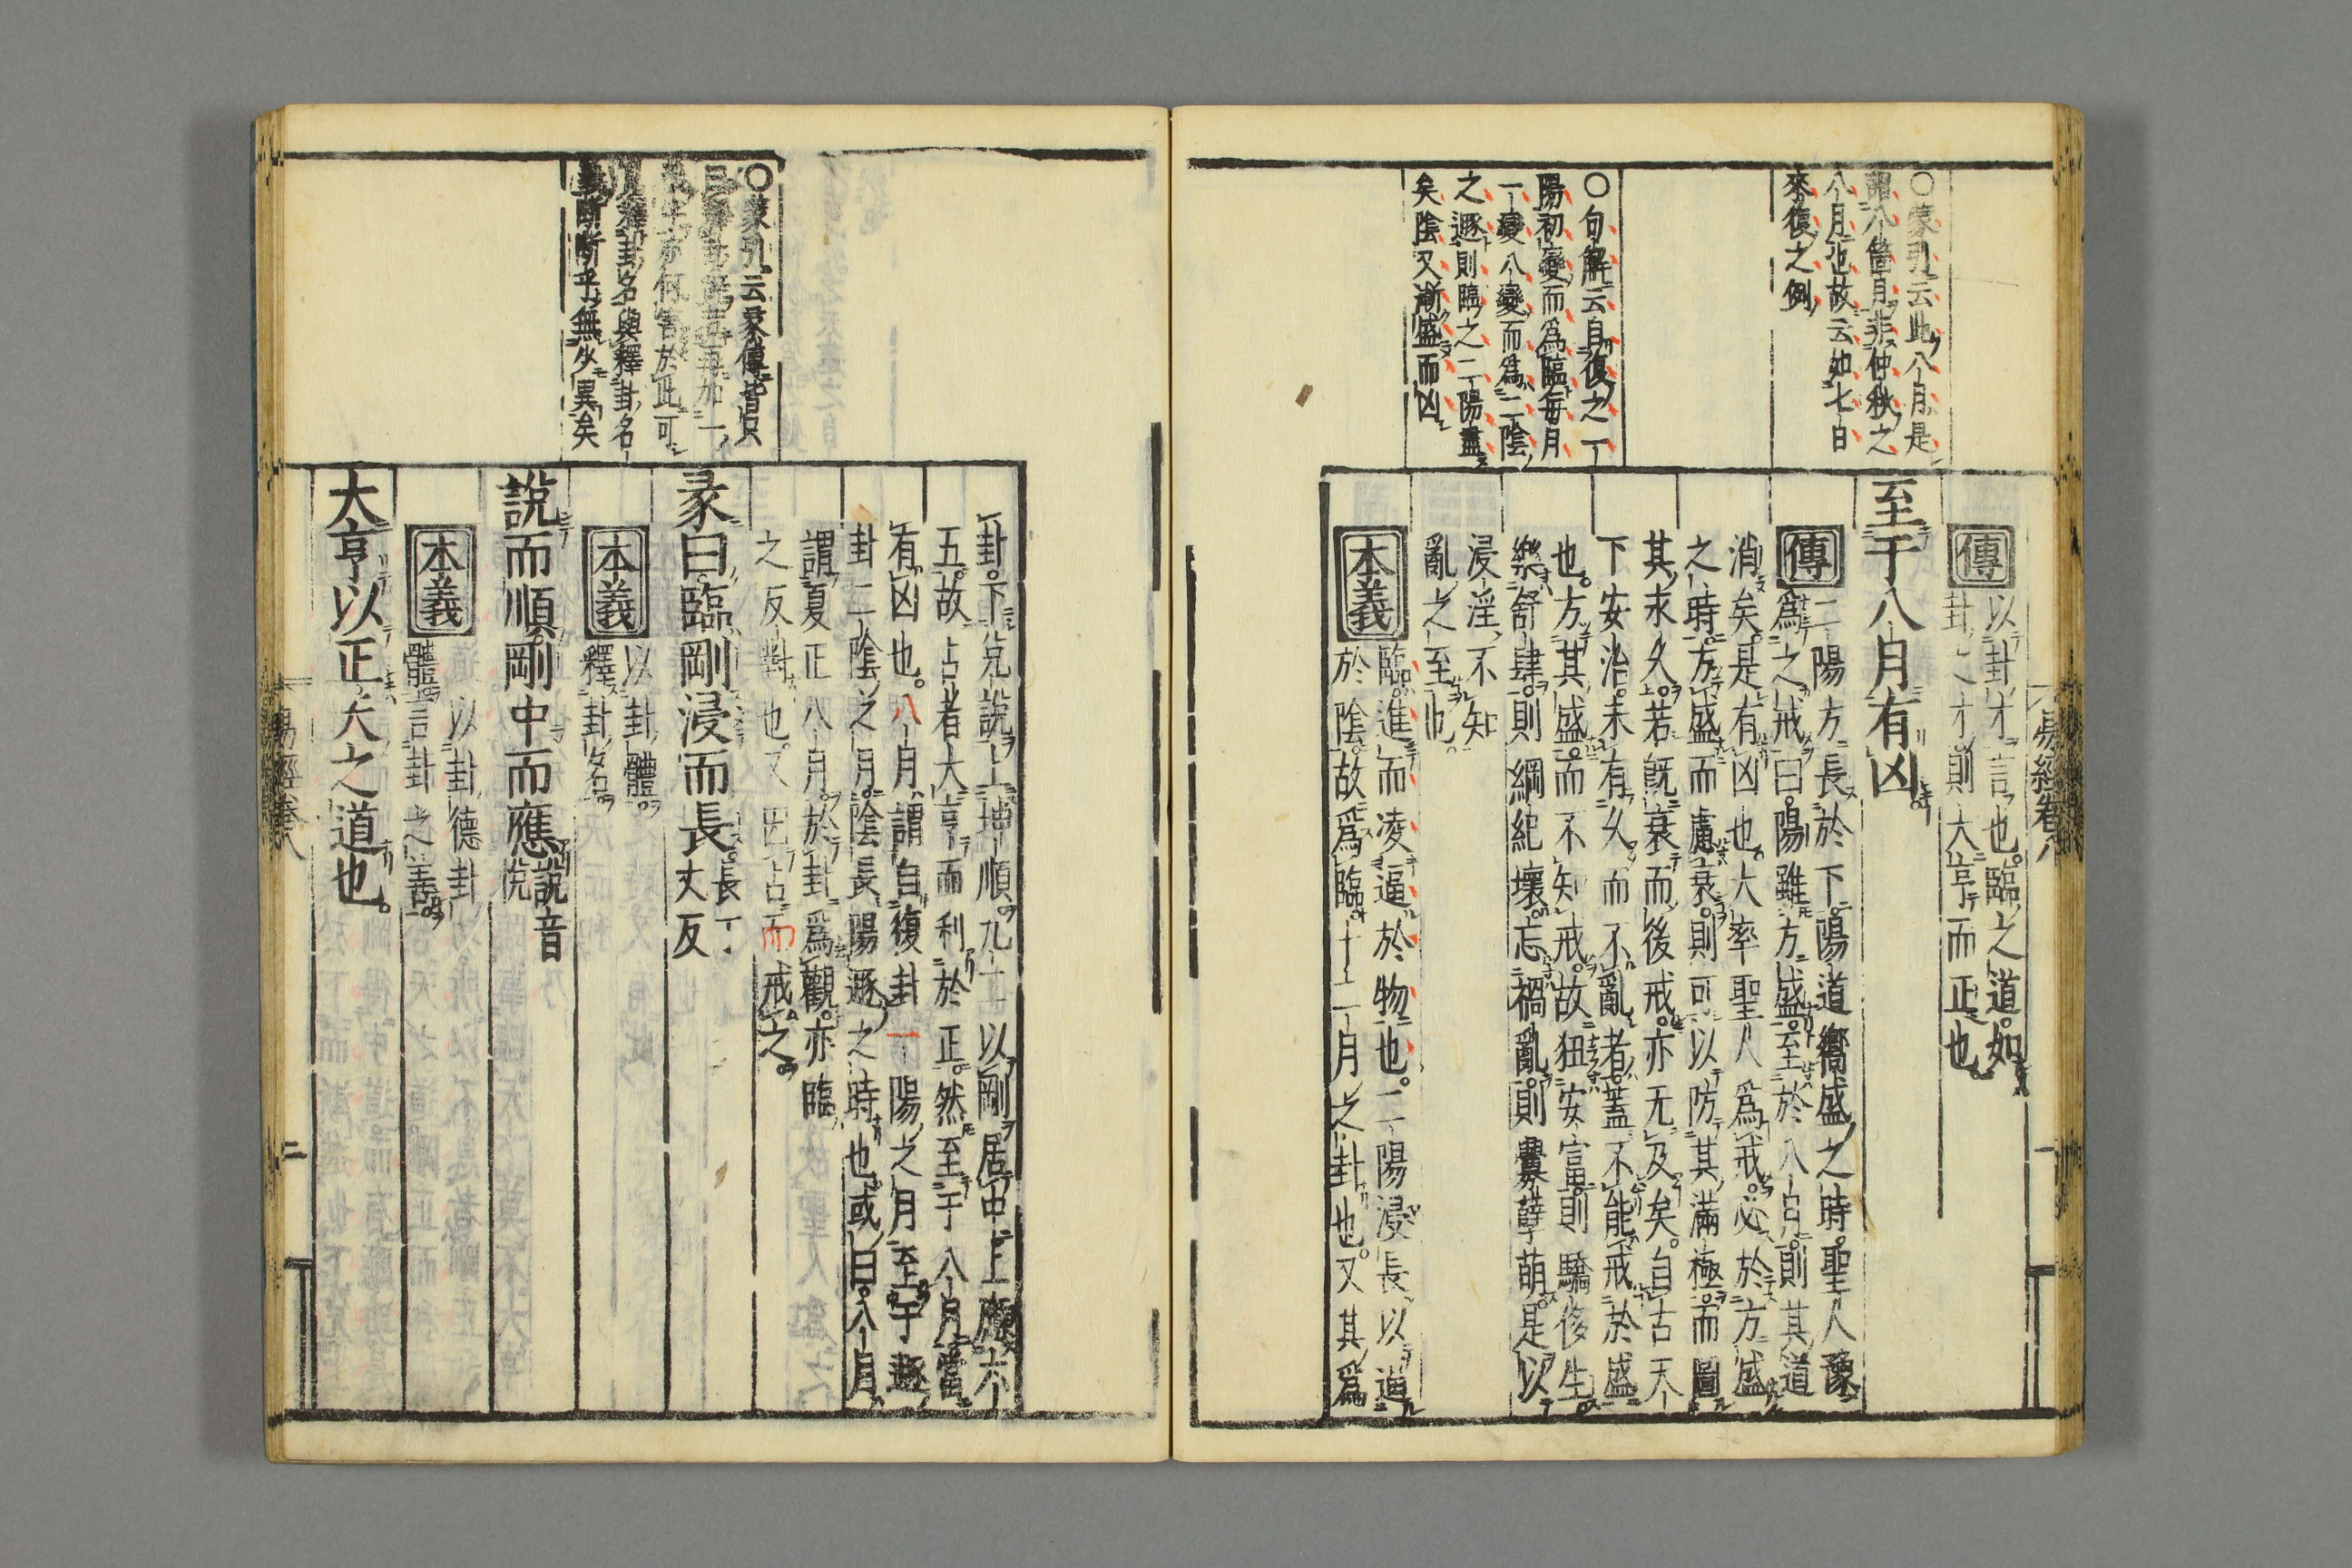 易經卷八
一
○蒙引云此八月是
八箇月非仲秋之
八月也故云如七日
來復之例
○句解云自復之一
陽初變而爲臨每月
一變八變而爲二陰
之遯則臨之二陽盡
矣陰又漸盛而凶
傳
以卦才言也臨之道如
卦之才則大亨而正也
至于八月有凶
傳
二陽方長於下陽道嚮盛之時聖人豫
爲之戒曰陽雖方盛至於八月則其道
消矣是有凶也大率聖人爲戒必於方盛
之時方盛而慮衰則可以防其滿極而圖
其永久若旣衰而後戒亦无及矣自古天
下安治未有久而不亂者蓋不能戒於盛
也方其盛而不知戒故狃安富則驕侈生
樂舒肆則綱紀壞忘禍亂則釁孽萌是以
浸淫不知
亂之至也
本義
臨進而凌逼於物也二陽浸長以逼
於陰故爲臨十二月之卦也又其爲
卦下兌說上坤順九二以剛居中上應六
五故占者大亨而利於正然至于八月當
有凶也八月謂自復卦一陽之月至于遯
卦二陰之月陰長陽遯之時也或曰八月
謂夏正八月於卦爲觀亦臨
之反對也又因占而戒之
○蒙引云彖傳皆只
再加一
何害於此可
釋卦名與釋卦名
義斷斷乎無少異矣
彖曰臨剛浸而長長丁
丈反
本義
以卦體
釋卦名
說而順剛中而應說音
悅
本義
以卦德卦
體言卦之善
大亨以正天之道也
易經卷八
二